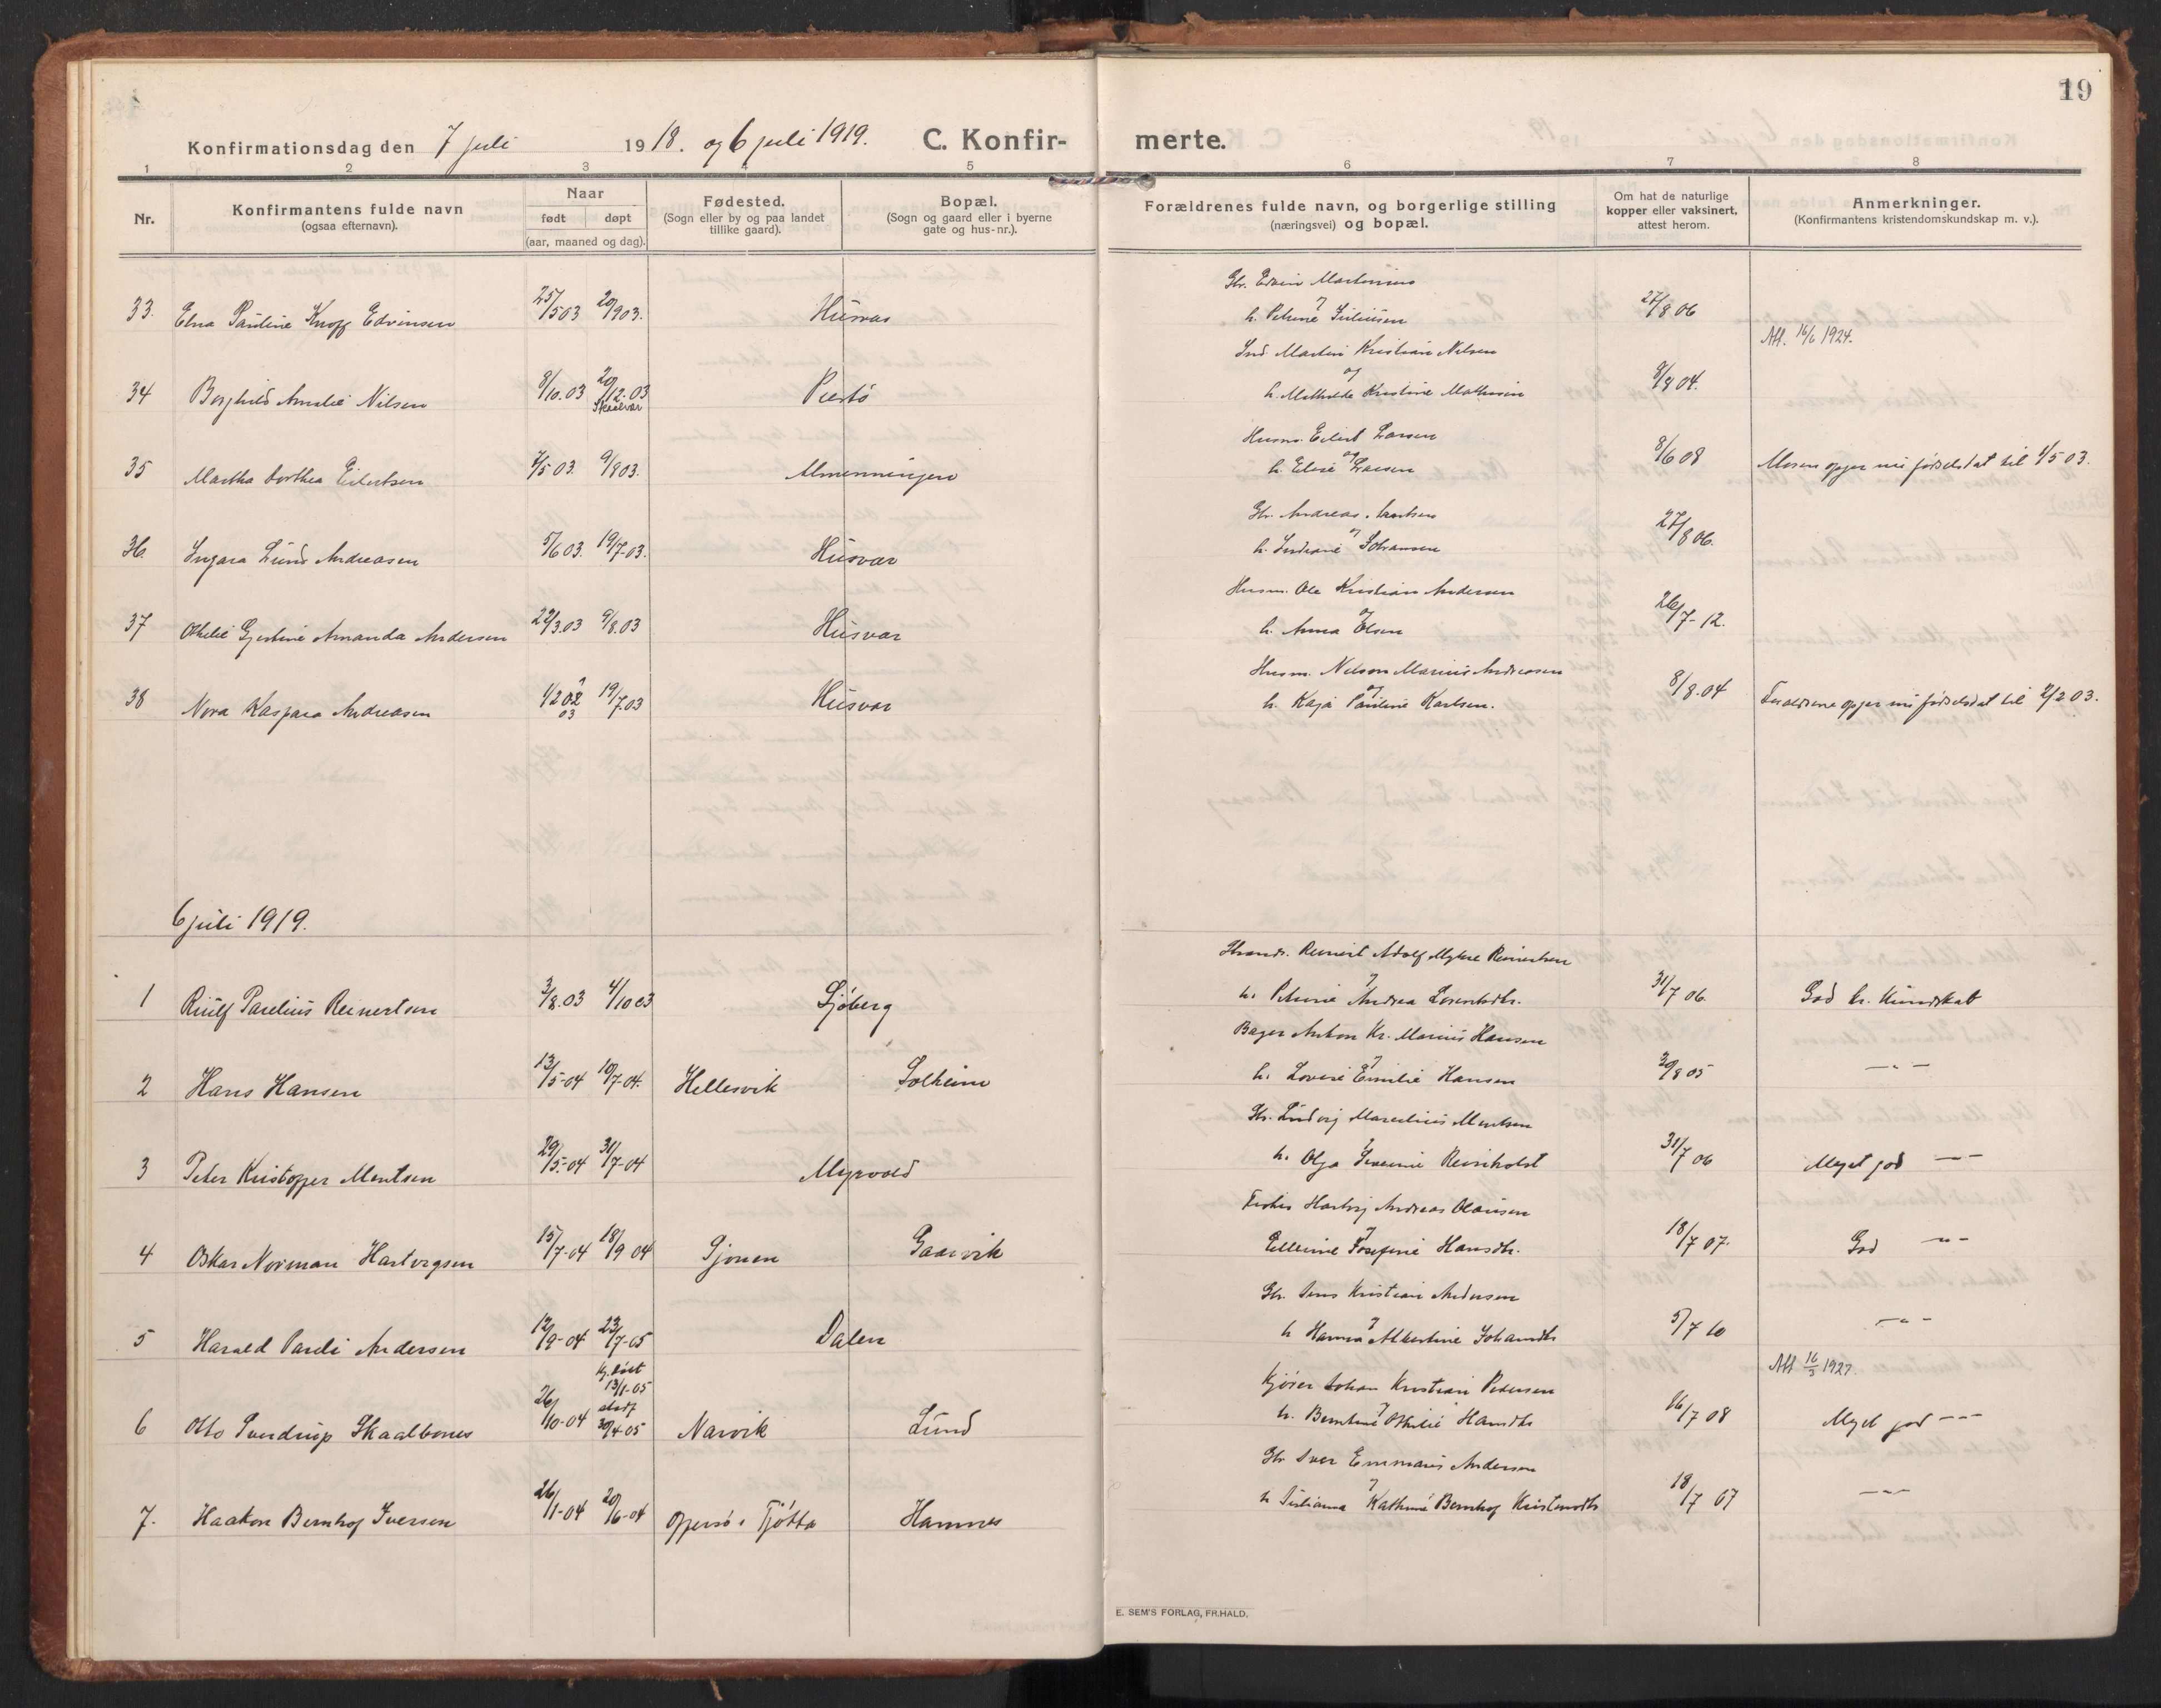 19
Konfirmationsdag den 7 juli 1918. og 6 juli 1919. C. Konfir-merte.
1 2 3 4 5 6 7 8
Nr.
Konfirmantens fulde navn
(ogsaa efternavn).
Naar
født døpt
(aar, maaned og dag).
Fødested.
(Sogn eller by og paa landet
tillike gaard).
Bopæl.
(Sogn og gaard eller i byerne
gate og hus-nr.).
Forældrenes fulde navn, og borgerlige stilling
(næringsvei) og bopæl.
Om hat de naturlige
kopper eller vaksinert,
attest herom.
Anmerkninger.
(Konfirmantens kristendomskundskap m. v.).
Gbr. Edvin Martinsen
33. Elna Pauline Knoff Edvinsen 25/5 03 20/9 03. Husvær og h. Petrine Juliussen 27/8 06
Att. 16/6 1924.
Ind. Martin Kristian Nilsen
34 Borghild Amalie Nilsen 8/10. 03 20/12. 03 og h. Mathilde Kristine Mathisen 8/8 04.
Skaalvær
Husm. Eilert Larsen
35 Martha Dorthea Eilertsen 7/5 03. 9/8 03. Almenningen h. Eline og Larsen 8/6 08 Moren opgir nu fødselsdat til 1/5 03.
Gbr. Andreas
36. Ingara Lund Andreasen 5/6 03. 19/7-03. Husvær h. og Johansen 27/8 06.
Husm. Ole Kristian Andersen
37 Othilie Gjertine Amanda Andersen 22/3. 03 9/8. 03 Husvær h. Anna og Olsen 26/7-12.
Husm. Nelson Marius Andreasen
38 Nora Kaspara Andreasen 1/2 02 ? 03 19/7. 03 Husvær h. Kaja og Pauline Karlsen. 8/8. 04 Forældrene opgir nu fødselsdat til 2/2 03.
6 juli 1919.
Strands. Reinert Adolf Myhre Reinertsen
1 Riulf Parelius Reinertsen 3/8. 03 4/10 03 Sjøberg h. Petrine og Andrea Lorentsdtr. 31/7 06. God kr. kundskab
Bager Anton Kr. Marius Hansen
2 Hans Hansen 13/5-04 10/7-04. Hellesvik Solheim h. Lovise og Emilie Hansen 20/8 05 — " —
Gbr. Ludvig Marselius Mentsen
3 Peter Kristoffer Mentsen 29/5.-04 31/7-04 Myrvold h. Olga og Reinholst 31/7 06 Meget god — —
Fisker Hartvig Andreas Olausen
4 Oskar Norman Hartvigsen 15/7-04 18/9 04 Gaasvik Ellevine og Josefine Hansdtr. 18/7 07. God — " —
Gbr. Jens Kristian Andersen
5 Harald Pareli Andersen 12/9-04 23/7-05 Dalen h Hanna og Albertine Johansdtr 5/7 10 — " —
Att 16/3 1927.
Kjører Johan Kristian Pedersen
6 Otto Sverdrup Skaalbones 26/10-04 hj. døbt 13/1-05 stadf 30/4-05 Narvik Lund h. Berntine og Othilie Hansdtr 16/7 08 Meget god — — —
Gbr Iver Emmanus Andersen
7. Haakon Bernhof Iversen 26/1-04 20/6-04 i Tjøtta Hamnes h Julianna og Kathrine Bernhof Kristensdtr 18/7 07 — " —
E. SEM'S FORLAG, FR.HALD.